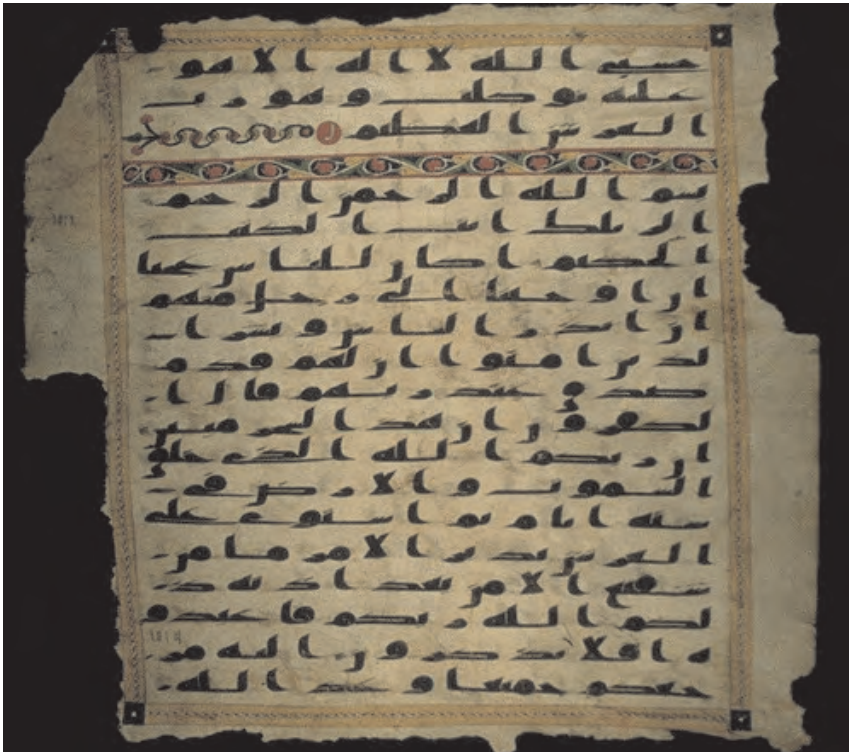 حسبي الله لا اله الا هو
عليه توكلت و هو رب
العرش العظيم
بسم الله الرحمن الرحيم
الر تلك ايت الكتب
الحكيم اكان للناس عجبا
ان اوحينا الى رجل منهم
ان انذر الناس و بشر ا
لذين امنوا ان لهم قدم
صدق عند ربهم قال ا
لكفرون ان هذا لسحر مبين
ان ربكم الله الذي خلق
السموت و الارض في
ستة ايام ثم استوى على
العرش يدبر الامر ما من
شفيع الا من بعد اذنه ذ
لكم الله ربكم فاعبدو
ه افلا تذكرون اليه مر
جعكم جميعا وعد الله